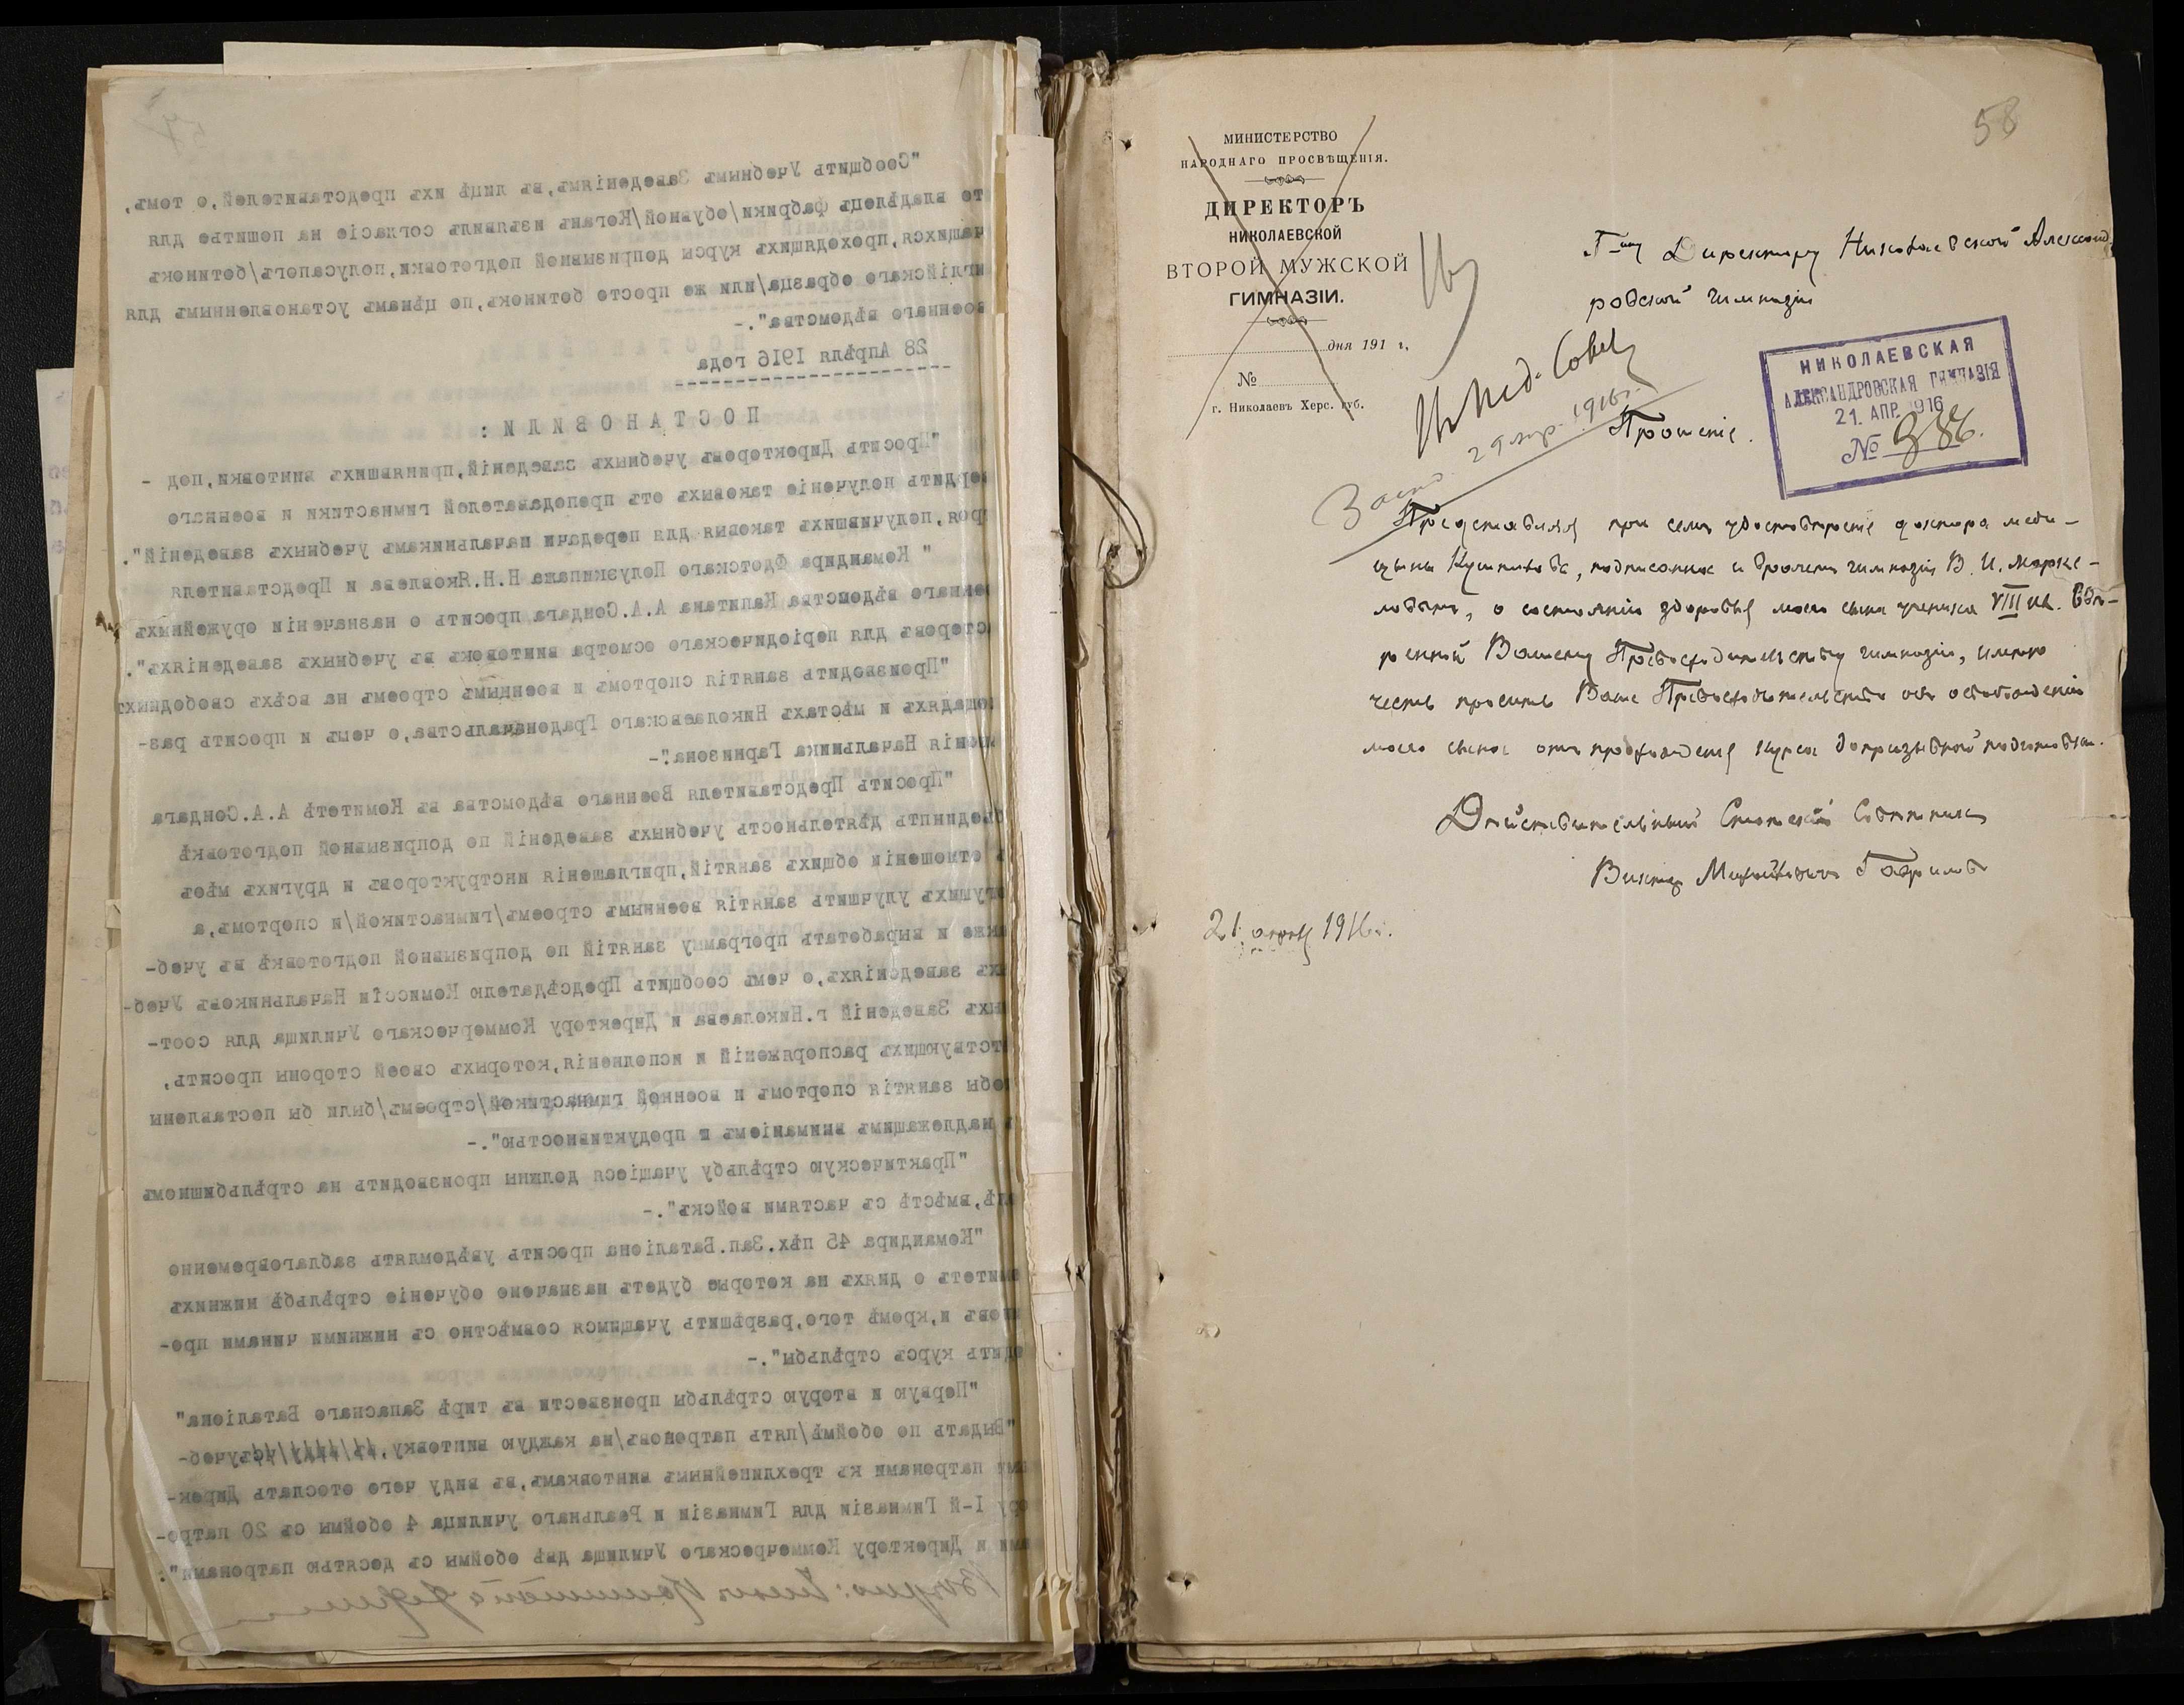 "Сообщить Учебнымъ Заведеніямъ,въ лицѣ ихъ представителей,о томъ,
что владѣлецъ фабрики/обувной/Коганъ изъявилъ согласіе на пошитье для
учащихся,проходящихъ курсы допризывной подготовки,полусапогъ/ботинокъ
англійскаго образца/или же просто ботинокъ,по цѣнамъ установленнымъ для
военнаго вѣдомства".-
28 Апрѣля 1916 года
ПОСТАНОВИЛИ:
"Просить Директоровъ учебныхъ заведеній,принявшихъ винтовки,под -
вердить полученіе таковыхъ отъ преподавателей гимнастики и военнаго
строя,получившихъ таковыя для передачи начальникамъ учебныхъ заведеній".
" Командира Флотскаго Полуэкипажа Н.Н.Яковлева и Представителя
военнаго вѣдомства Капитана А.А.Сондага просить о назначеніи оружейныхъ
мастеровъ для періодическаго осмотра винтовокъ въ учебныхъ заведеніяхъ".
"Производить занятія спортомъ и военнымъ строемъ на всѣхъ свободныхъ
площадяхъ и мѣстахъ Николаевскаго Градоначальства,о чемъ и просить раз-
рѣшенія Начальника Гарнизона".-
"Просить Представителя Военнаго вѣдомства въ Комитетѣ А.А.Сондага
объединить дѣятельность учебныхъ заведеній по допризывной подготовкѣ
въ отношеніи общихъ занятій,приглашенія инструкторовъ и другихъ мѣръ
могущихъ улучшить занятія военнымъ строемъ/гимнастикой/и спортомъ,а
также и выработать программу занятій по допризывной подготовкѣ въ учеб-
ныхъ заведеніяхъ,о чемъ сообщить Предсѣдателю Комиссіи Начальниковъ Учеб-
ныхъ Заведеній г.Николаева и Директору Коммерческаго Училища для соот-
вѣтствующихъ распоряженій и исполненія,которыхъ своей стороны просить,
чтобы занятія спортомъ и военной гимнастикой/строемъ/были бы поставлены
съ надлежащимъ вниманіемъ и продуктивностью".-
"Практическую стрѣльбу учащіеся должны производить на стрѣльбищномъ
полѣ,вмѣстѣ съ частями войскъ".-
"Командира 45 пѣх.Зап.Баталіона просить увѣдомлять заблаговременно
Комитетъ о дняхъ на которые будетъ назначено обученіе стрѣльбѣ нижнихъ
чиновъ и,кромѣ того,разрѣшить учащимся совмѣстно съ нижними чинами про-
ходить курсъ стрѣльбы".-
"Первую и вторую стрѣльбы произвести въ тирѣ Запаснаго Баталіона"
"Выдать по обоймѣ/пять патроновъ/на каждую винтовку, съ учеб-
ными патронами къ трехлинейнымъ винтовкамъ,въ виду чего отослать Дирек-
тору I-й Гимназіи для Гимназіи и Реальнаго училища 4 обоймы съ 20 патро-
нами и Директору Коммерческаго Училища двѣ обоймы съ десятью патронами".
Вѣрно: Членъ Комитета
58
МИНИСТЕРСТВО
НАРОДНАГО ПРОСВѢЩЕНІЯ.
ДИРЕКТОРЪ
НИКОЛАЕВСКОЙ
ВТОРОЙ МУЖСКОЙ
ГИМНАЗІИ.
дня 191 г.
№
г. Николаевъ Херс. губ.
Г-ну Директору Николаевской Александ
ровской гимназіи
НИКОЛАЕВСКАЯ
АЛЕКСАНДРОВСКАЯ ГИМНАЗІЯ
21. АПР. 1916
№ 386.
Въ Пед. Совѣт
29 апр. 1916 г.
Прошеніе.
Представляя при семъ удостовѣреніе доктора меди-
цины Кушникова, подписанное и врачемъ гимназіи В. И. Марке-
ловымъ, о состояніи здоровья моего сына ученика VIII кл. ввѣ-
ренной Вашему Превосходительству гимназіи, имѣю
честь просить Ваше Превосходительство объ освобожденіи
моего сына отъ прохожденія курса допризывной подготовки.
Дѣйствительный Статскій Совѣтникъ
Викторъ Михайловичъ Гавриловъ
21 апрѣля 1916 г.